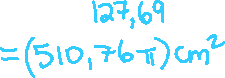 127,69
=(510,76π)cm²